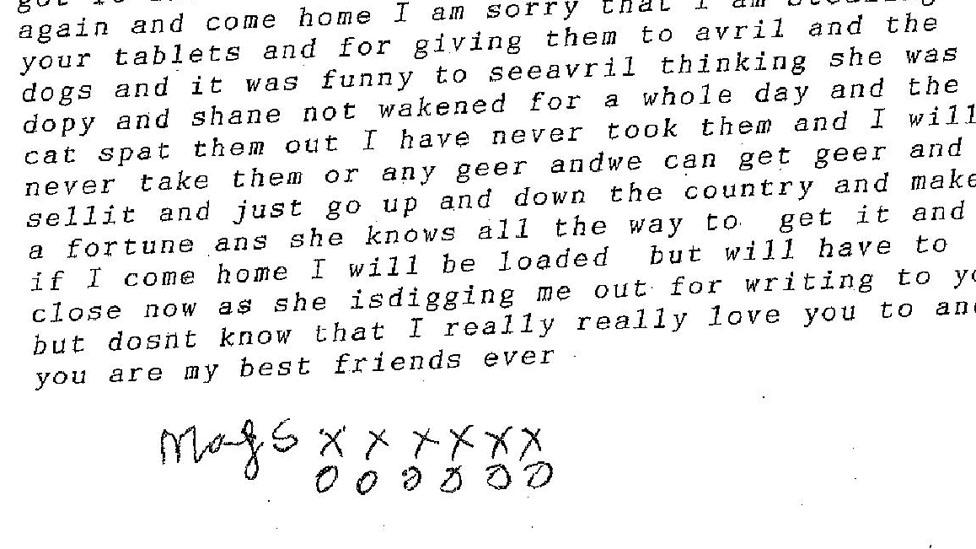 again and come home I am sorry that I am
your tablets and for giving them to avril and the
dogs and it was funny to seeavril thinking she was
dopy and shane not wakened for a whole day and the
cat spat them out I have never took them and I will
never take them or any geer andwe can get geer and
sellit and just go up and down the country and make
a fortune ans she knows all the way to. get it and
if I come home I will be loaded but will have to
close now as she isdigging me out for writing to yo
but dosnt know that I really really love you to and
you are my best friends ever
Mags x x x x x x
o o o o o o